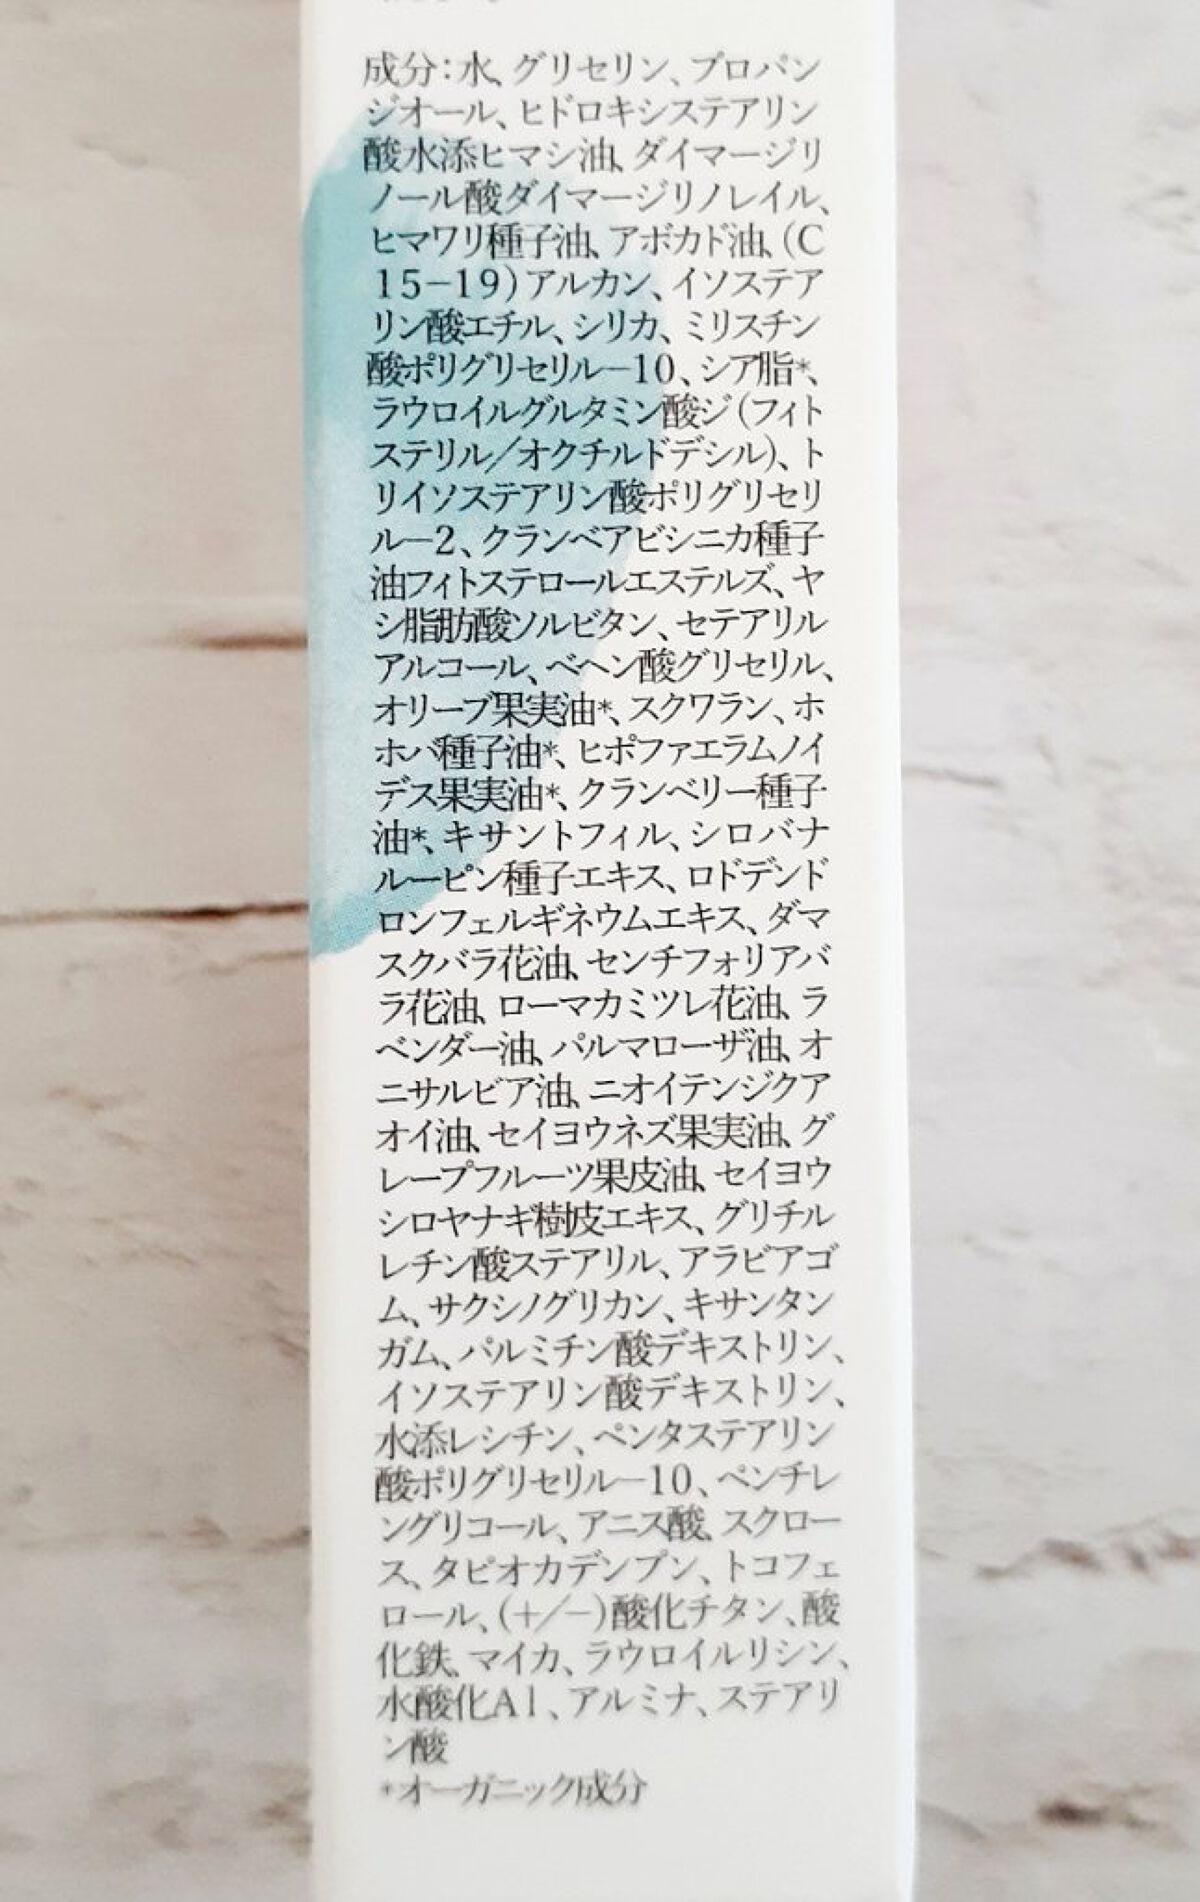 成分:水、グリセリン、プロパン
ジオール、ヒドロキシステアリン
酸水添ヒマシ油、ダイマージリ
ノール酸ダイマージリノレイル、
ヒマワリ種子油、アボカド油、(C
15−19)アルカン、イソステア
リン酸エチル、シリカ、ミリスチン
酸ポリグリセリル−10、シア脂*、
ラウロイルグルタミン酸ジ(フィト
ステリル/オクチルドデシル)、ト
リイソステアリン酸ポリグリセリ
ル−2、クランベアビシニカ種子
油フィトステロールエステルズ、ヤ
シ脂肪酸ソルビタン、セテアリル
アルコール、ベヘン酸グリセリル、
オリーブ果実油*、スクワラン、ホ
ホバ種子油*、ヒポファエラムノイ
デス果実油*、クランベリー種子
油*、キサントフィル、シロバナ
ルーピン種子エキス、ロドデンド
ロンフェルギネウムエキス、ダマ
スクバラ花油、センチフォリアバ
ラ花油、ローマカミツレ花油、ラ
ベンダー油、パルマローザ油、オ
ニサルビア油、ニオイテンジクア
オイ油、セイヨウネズ果実油、グ
レープフルーツ果皮油、セイヨウ
シロヤナギ樹皮エキス、グリチル
レチン酸ステアリル、アラビアゴ
ム、サクシノグリカン、キサンタン
ガム、パルミチン酸デキストリン、
イソステアリン酸デキストリン、
水添レシチン、ペンタステアリン
酸ポリグリセリル−10、ペンチレ
ングリコール、アニス酸、スクロー
ス、タピオカデンプン、トコフェ
ロール、(+/−)酸化チタン、酸
化鉄、マイカ、ラウロイルリシン、
水酸化Al、アルミナ、ステアリ
ン酸
*オーガニック成分